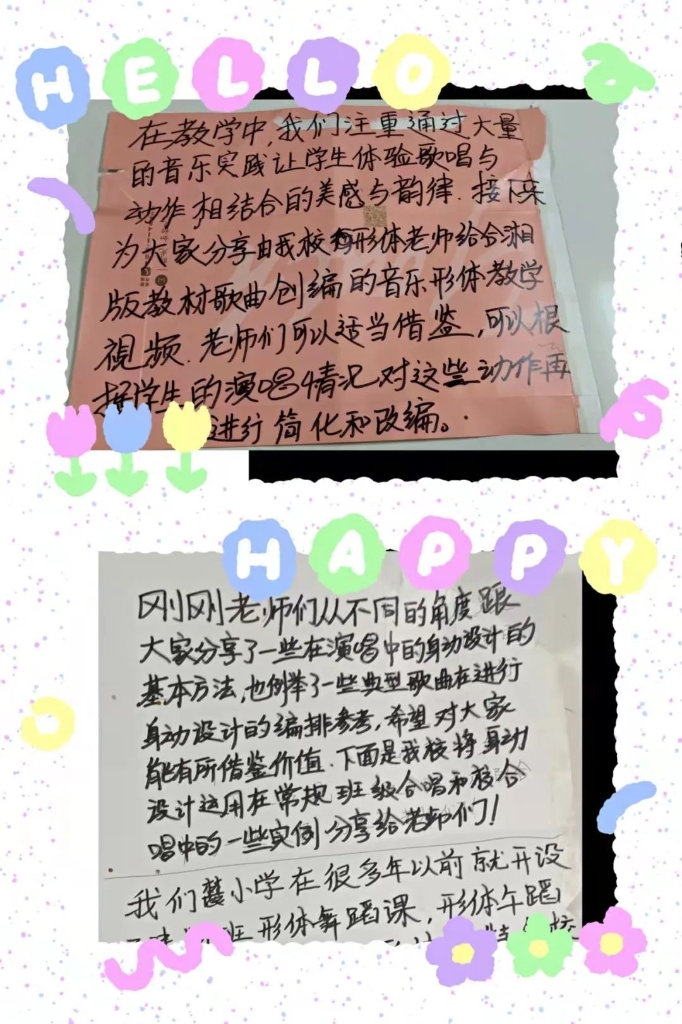 HELLO
在教学中,我们注重通过大量
的音乐实践让学生体验歌唱与
动作相结合的美感与韵律.接下来
为大家分享由我校形体老师给合湘
版教材歌曲创编的音乐形体教学
视频.老师们可以适当借鉴,可以根
据学生的演唱情况对这些动作再
进行简化和改编。
HAPPY
刚刚老师们从不同的角度跟
大家分享了一些在演唱中的身动设计的
基本方法,也例举了一些典型歌曲在进行
身动设计的编排参考,希望对大家
能有所借鉴价值.下面是我校将身动
设计运用在常规班级合唱和校合
唱中的一些实例分享给老师们!
我们小学在很多年以前就开设
形体舞蹈课,形体午蹈